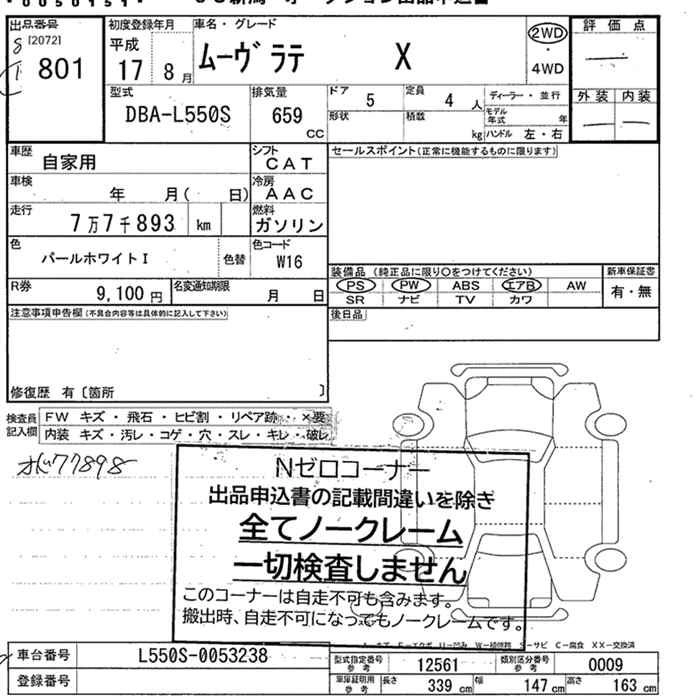 出品番号 初度登録年月 車名・グレード 評価点
[2072] 平成 ムーヴラテ X 2WD
801 17 8月 ・ 4WD
型式 排気量 ドア 5 定員 4人 ディーラー・並行 外装 内装
DBA-L550S 659cc 形状 積載 kg モデル年式 年
ハンドル 左・右
車歴 自家用 シフト CAT セールスポイント(正常に機能するものに限ります)
車検 年 月( 日) 冷房 AAC
走行 7万7千893 km 燃料 ガソリン
色 パールホワイトI 色替 色コード W16
装備品(純正品に限り○をつけてください) 新車保証書
R券 9,100円 名変通知期限 月 日 PS PW ABS エアB AW 有・無
SR ナビ TV カワ
注意事項申告欄(不具合内容等は具体的に記入して下さい) 後日品
修復歴 有〔箇所 〕
検査員記入欄 FW キズ・飛石・ヒビ割・リペア跡・×要
内装 キズ・汚レ・コゲ・穴・スレ・キレ・破レ
77898
Nゼロコーナー
出品申込書の記載間違いを除き
全てノークレーム
一切検査しません
このコーナーは自走不可も含みます。
搬出時、自走不可になってもノークレームです。
車台番号 L550S-0053238 型式指定番号 参考 12561 類別区分番号 参考 0009
登録番号 車庫証明用 参考 長さ 339cm 幅 147cm 高さ 163cm